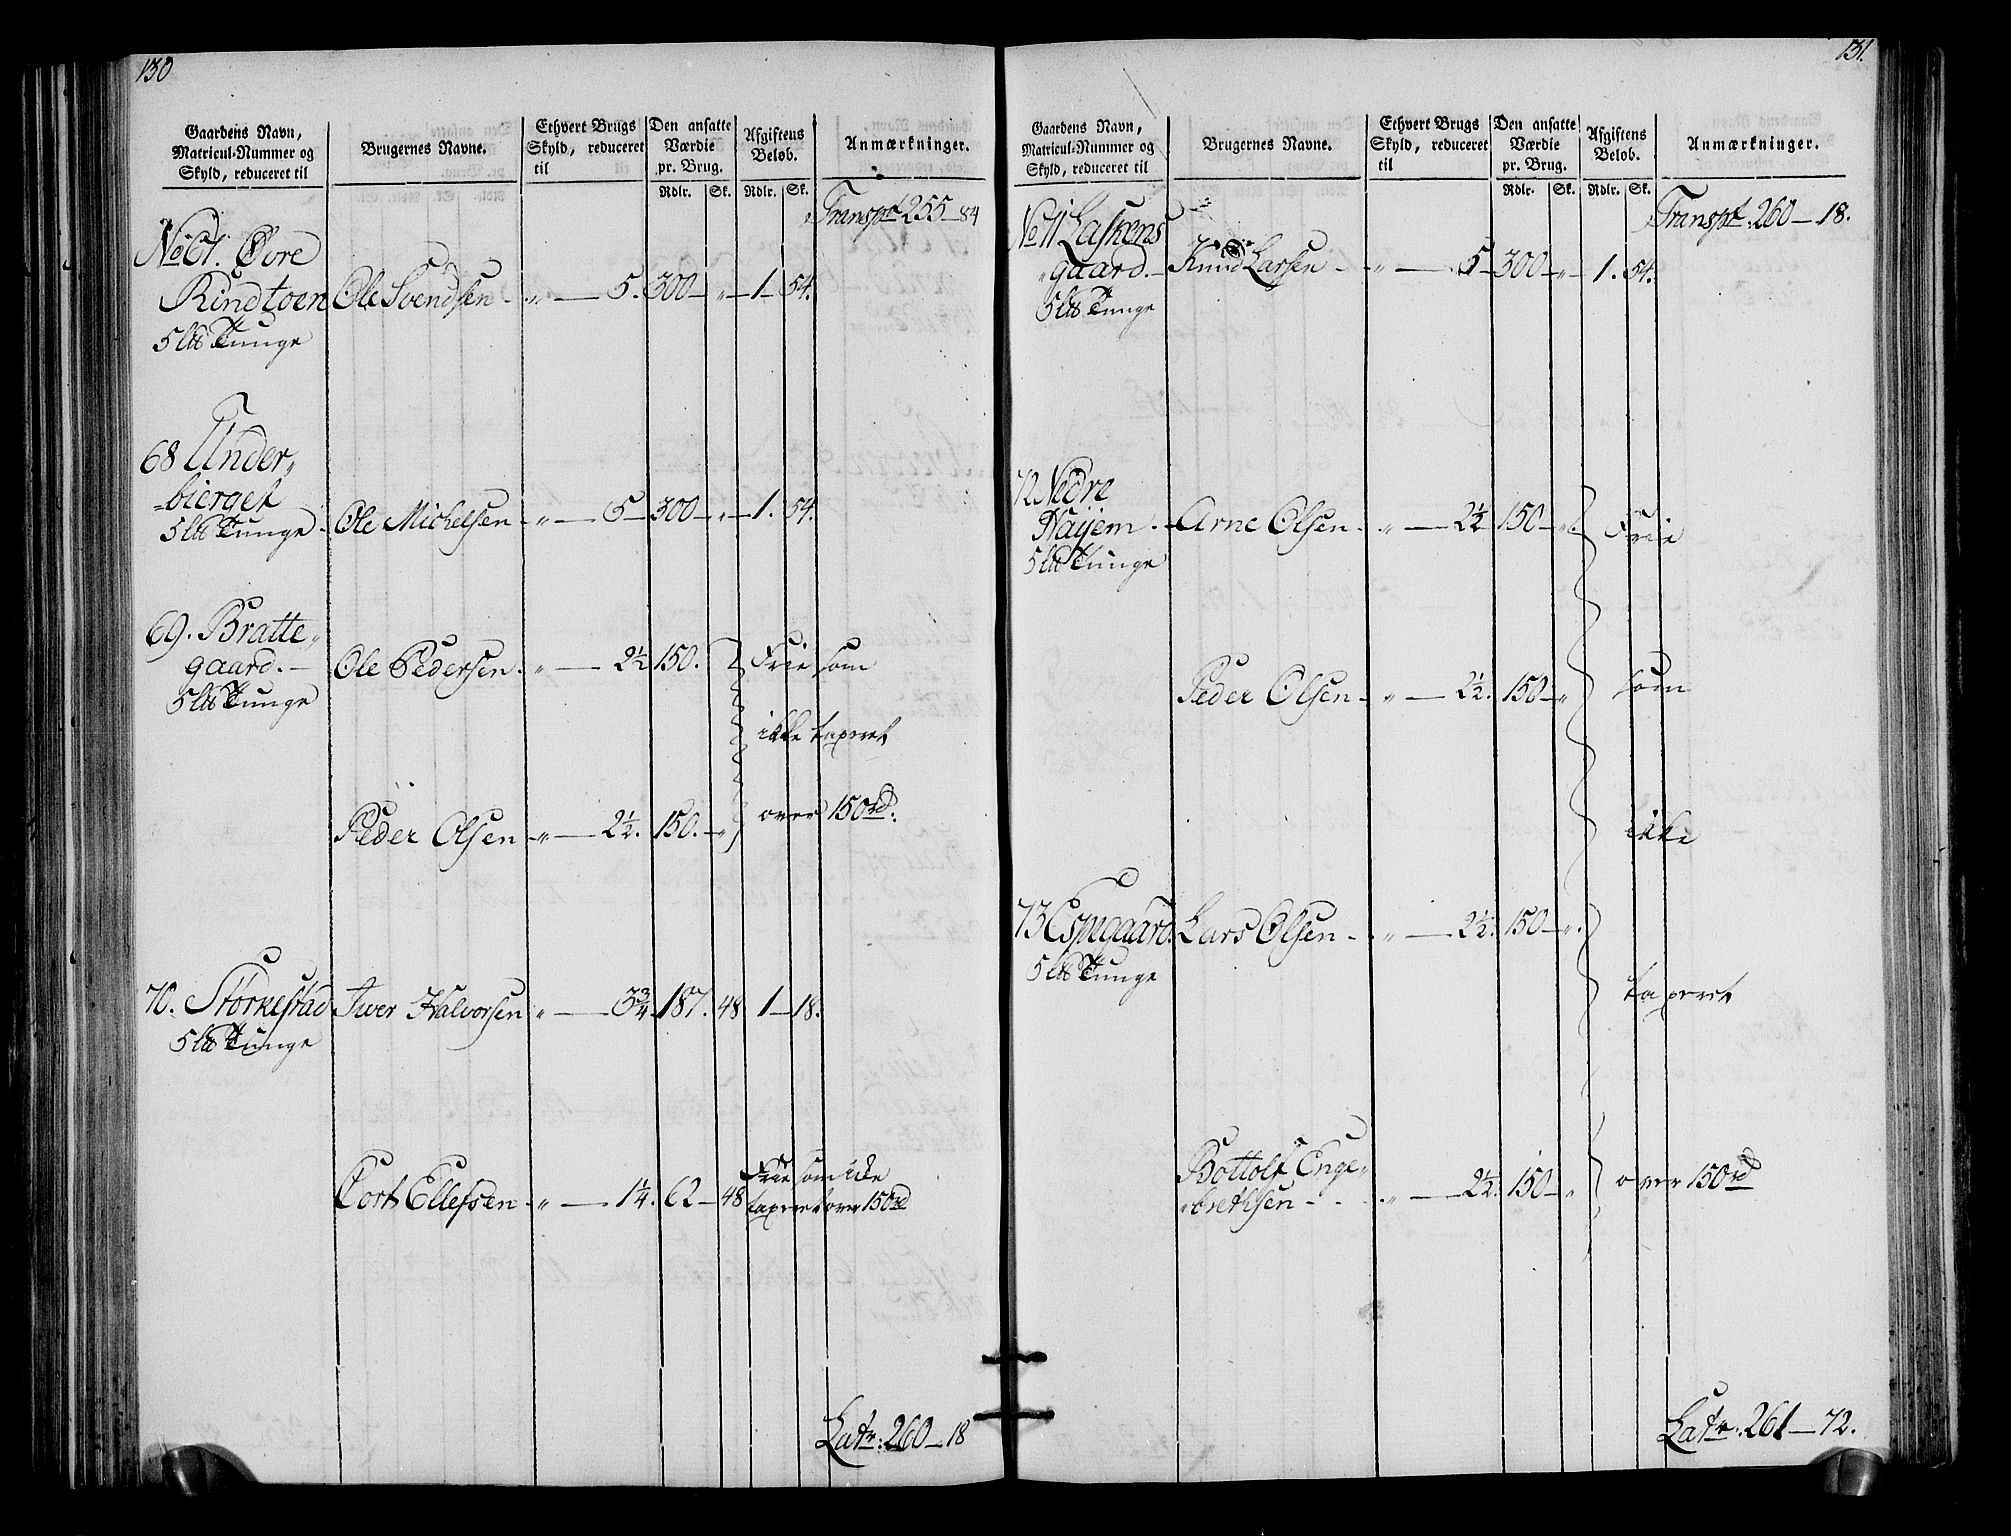 130
Gaardens Navn, Matricul-Nummer og Skyld, reduceret til
Brugernes Navne.
Ethvert Brugs Skyld, reduceret til
Den ansatte Værdie pr. Brug.
Afgiftens Beløb.
Anmærkninger.
Rdlr. Sk. Rdlr. Sk.
Transpt 255 — 84
No 67. Øvre
Rindtoen Ole Svendsen - „ — 5. 300 — „ — 1 — 54.
5 lb Tunge
68 Under„
-bierget
5 lb Tunge - Ole Michelsen - „ — 5 — 300 — „ — 1. 54.
69. Bratte„
gaard. — Ole Pedersen - „ — 2½ 150. „ Frie som
5 lb Tunge
ikke taxeret
over 150 rd.
Peder Olsen - „ — 2½. 150. — „
70. Storkestad Iver Halvorsen „ — 3¾. 187. 48 1 — 18.
5 lb Tunge
Cort Ellefsen - „ — 1¼. 62 — 48 Frie som ikke
taxeret over 150 rd
Latr: 260 — 18
131.
Gaardens Navn, Matricul-Nummer og Skyld, reduceret til
Brugernes Navne.
Ethvert Brugs Skyld, reduceret til
Den ansatte Værdie pr. Brug.
Afgiftens Beløb.
Anmærkninger.
Rdlr. Sk. Rdlr. Sk.
Transpt: 260 — 18.
No 71 Laskens
„gaard. — Knud Larsen - „ — 5 — 300 — „ 1. 54.
5 lb Tunge
72 Nedre
Haijem. — Arne Olsen - „ — 2½ 150 — „ Frie
5 lb Tunge
Peder Olsen - „ — 2½. 150 — „ som
ikke
73 Espegaard. Lars Olsen - „ — 2½. 150 — „.
5 lb Tunge
taxeret
Bottolf Enge„
„brethsen - - „ — 2½. 150 — „ over 150 rd
Latr: 261 — 72.